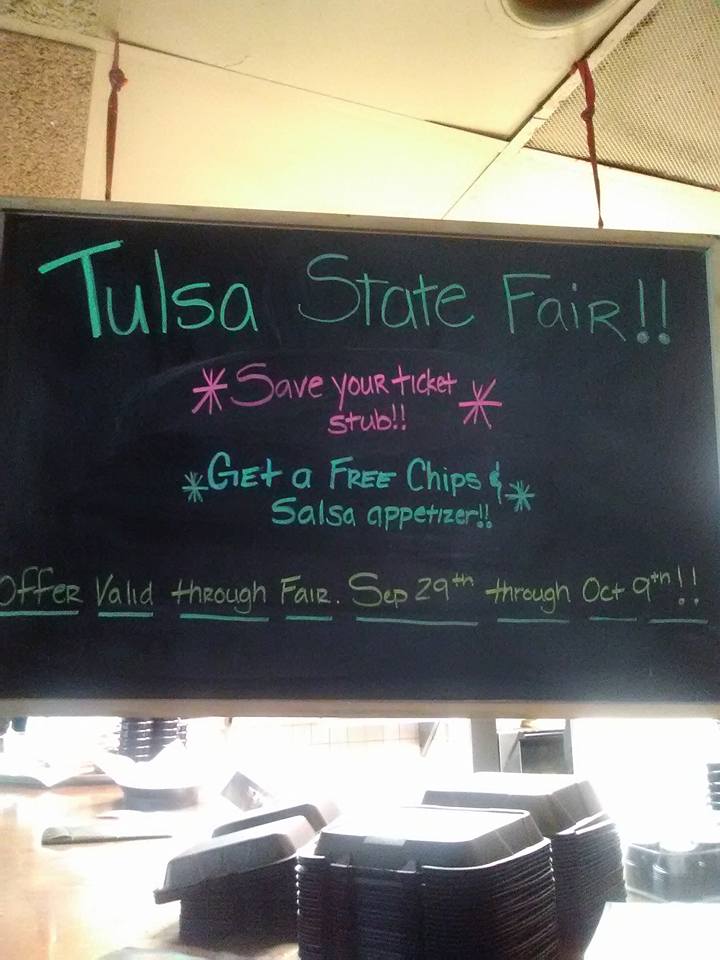 Tulsa State Fair!!
*Save your ticket*
stub!!
*Get a FREE Chips &*
Salsa appetizer!!
Offer Valid through Fair. Sep 29th through Oct 9th!!